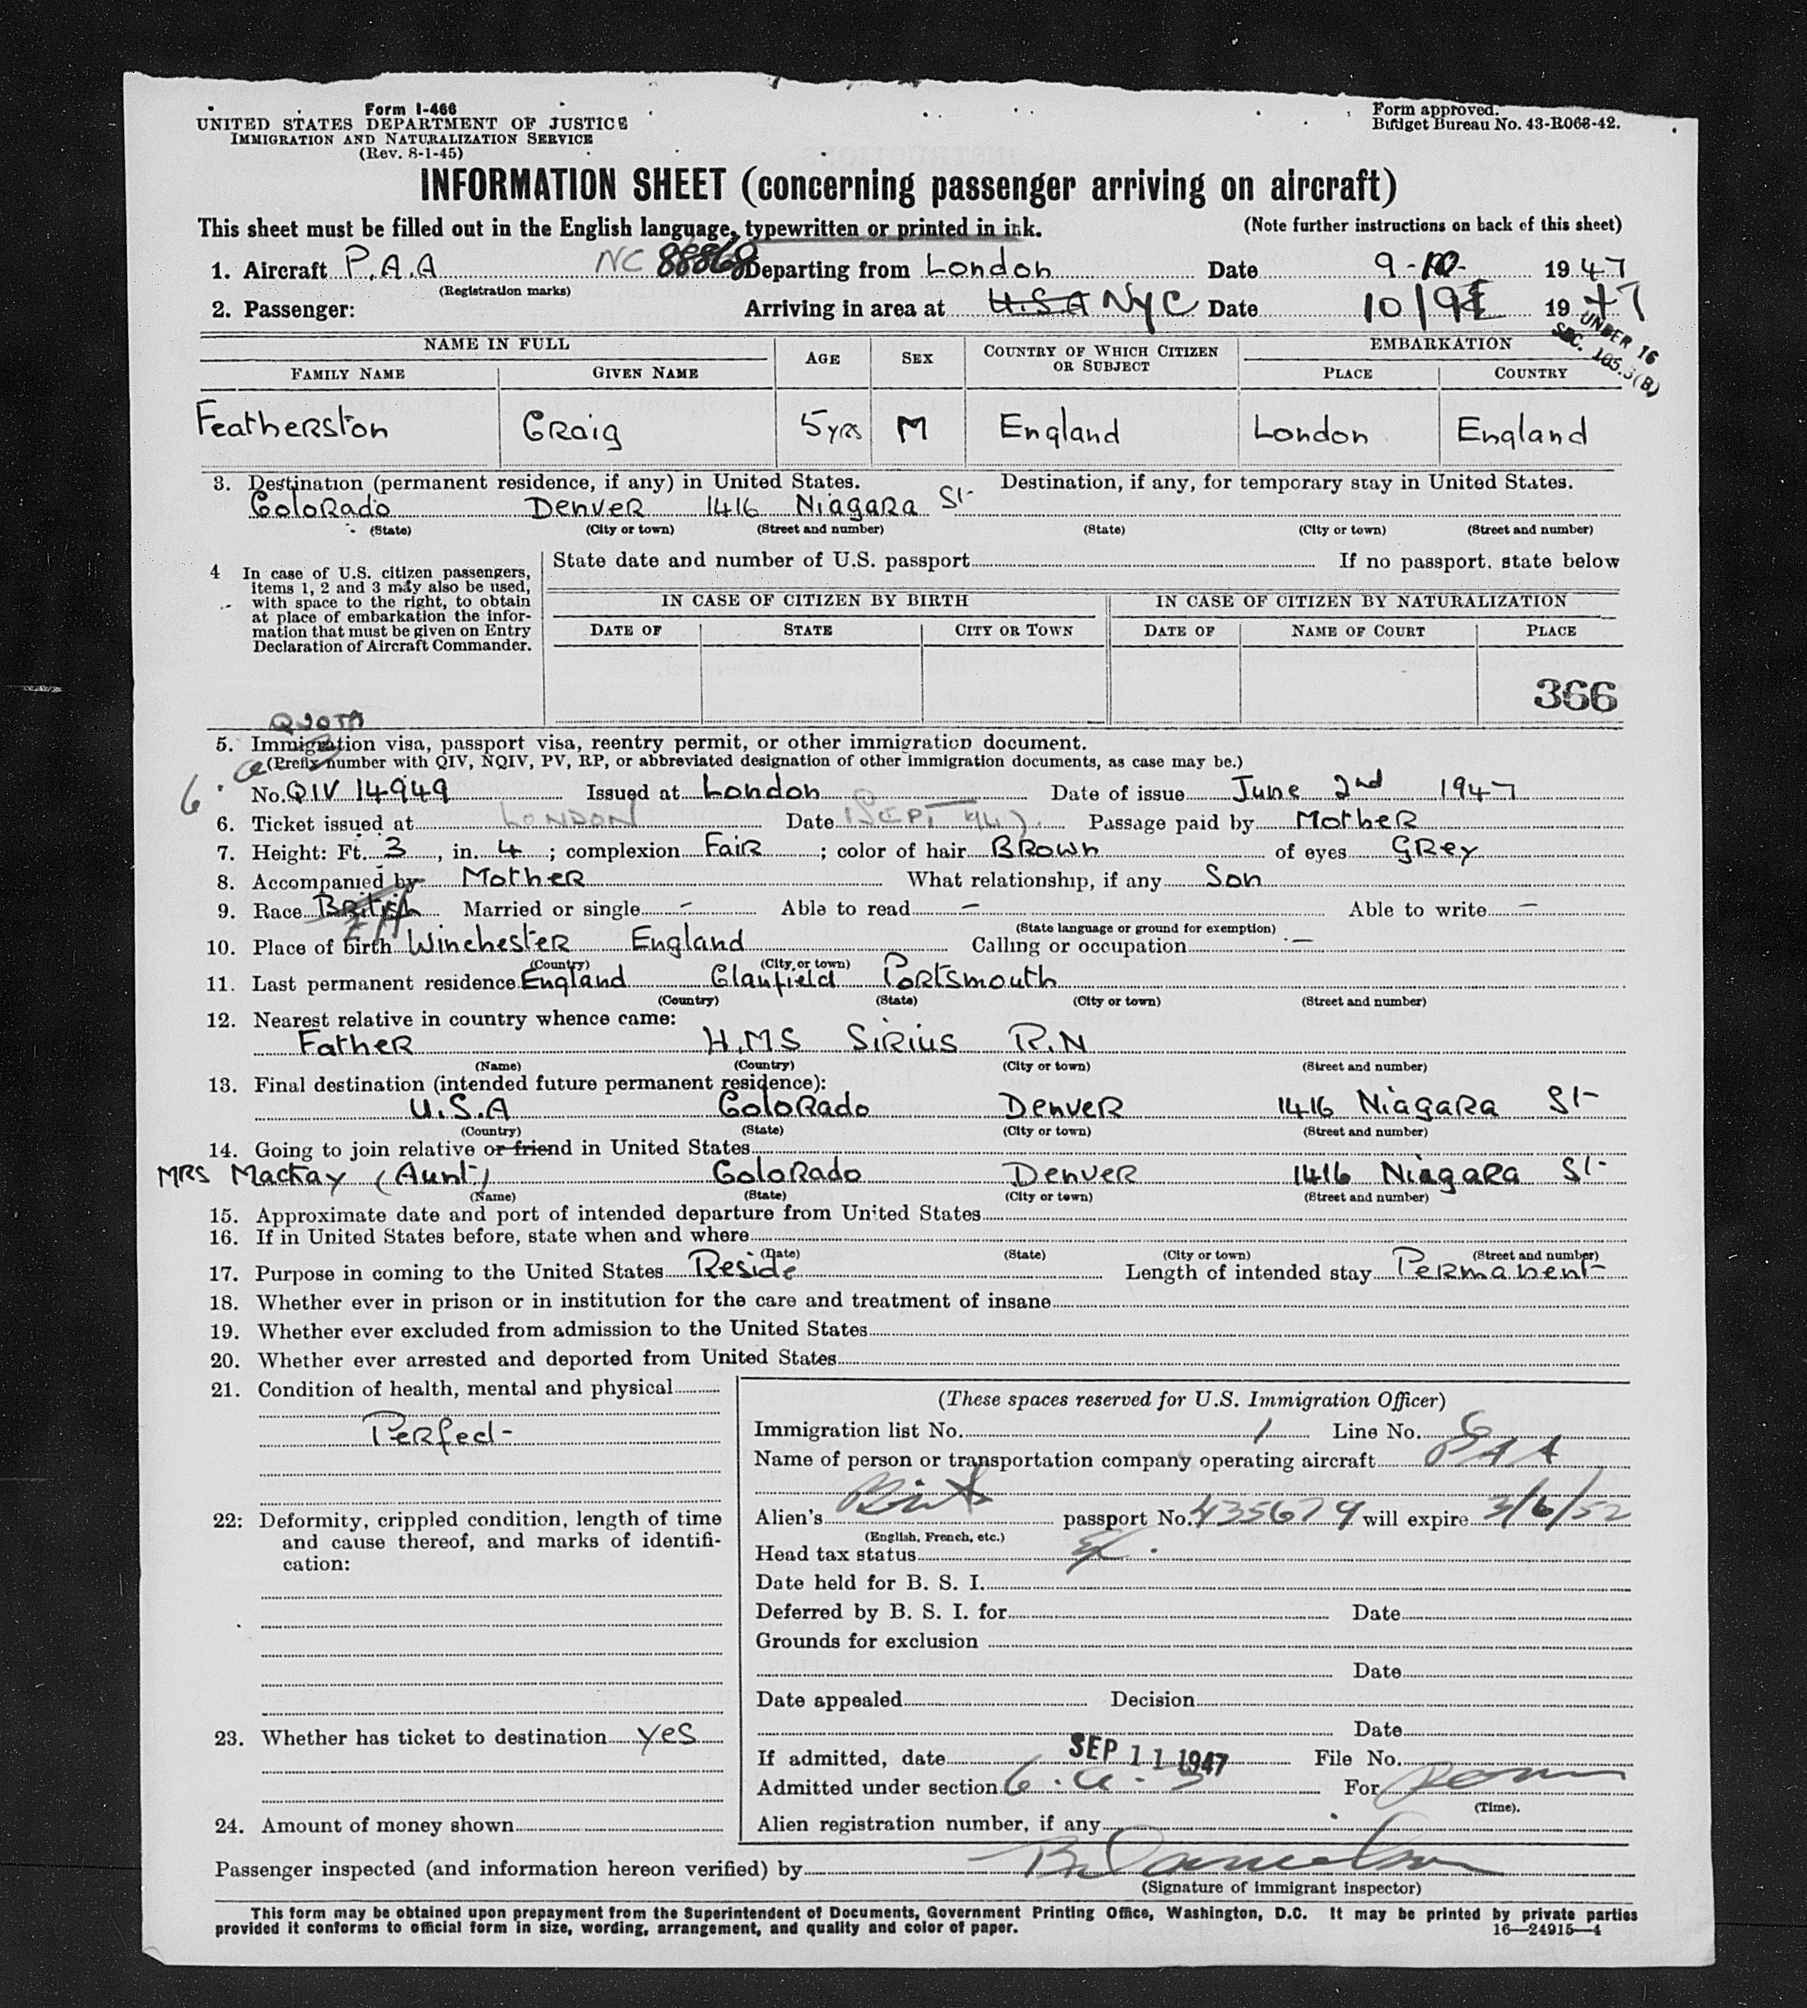 Form I-466
UNITED STATES DEPARTMENT OF JUSTICE
IMMIGRATION AND NATURALIZATION SERVICE
(Rev. 8-1-45)
Form approved.
Budget Bureau No. 43-R068-42.
INFORMATION SHEET (concerning passenger arriving on aircraft)
This sheet must be filled out in the English language, typewritten or printed in ink. (Note further instructions on back of this sheet)
1. Aircraft P.A.A NC 88868 Departing from London Date 9-10- 1947
(Registration marks)
2. Passenger: Arriving in area at U.S.A NYC Date 10/9 1947
UNDER 16
SEC. 105.3(B)
NAME IN FULL AGE SEX COUNTRY OF WHICH CITIZEN OR SUBJECT EMBARKATION
FAMILY NAME GIVEN NAME PLACE COUNTRY
Featherston Craig 5 yrs M England London England
3. Destination (permanent residence, if any) in United States. Destination, if any, for temporary stay in United States.
Colorado Denver 1416 Niagara St
(State) (City or town) (Street and number) (State) (City or town) (Street and number)
4 In case of U.S. citizen passengers, items 1, 2 and 3 may also be used, with space to the right, to obtain at place of embarkation the information that must be given on Entry Declaration of Aircraft Commander.
State date and number of U.S. passport If no passport, state below
IN CASE OF CITIZEN BY BIRTH IN CASE OF CITIZEN BY NATURALIZATION
DATE OF STATE CITY OR TOWN DATE OF NAME OF COURT PLACE
366
QUOTA
5. Immigration visa, passport visa, reentry permit, or other immigration document.
(Prefix number with QIV, NQIV, PV, RP, or abbreviated designation of other immigration documents, as case may be.)
No. QIV 14949 Issued at London Date of issue June 2nd 1947
6. Ticket issued at LONDON Date SEPT Passage paid by Mother
7. Height: Ft. 3, in. 4; complexion Fair; color of hair Brown of eyes Grey
8. Accompanied by Mother What relationship, if any Son
9. Race British Married or single - Able to read - Able to write -
(State language or ground for exemption)
10. Place of birth Winchester England Calling or occupation -
(Country) (City or town)
11. Last permanent residence England Clanfield Portsmouth
(Country) (State) (City or town) (Street and number)
12. Nearest relative in country whence came:
Father H.M.S Sirius R.N
(Name) (Country) (City or town) (Street and number)
13. Final destination (intended future permanent residence):
U.S.A Colorado Denver 1416 Niagara St
(Country) (State) (City or town) (Street and number)
14. Going to join relative or friend in United States
MRS Mackay (Aunt) Colorado Denver 1416 Niagara St
(Name) (State) (City or town) (Street and number)
15. Approximate date and port of intended departure from United States
16. If in United States before, state when and where
(Date) (State) (City or town) (Street and number)
17. Purpose in coming to the United States Reside Length of intended stay Permanent
18. Whether ever in prison or in institution for the care and treatment of insane
19. Whether ever excluded from admission to the United States
20. Whether ever arrested and deported from United States
21. Condition of health, mental and physical
Perfect
22: Deformity, crippled condition, length of time and cause thereof, and marks of identification:
23. Whether has ticket to destination yes
24. Amount of money shown
(These spaces reserved for U.S. Immigration Officer)
Immigration list No. 1 Line No. 6
Name of person or transportation company operating aircraft PAA
Alien's Brit passport No. 435679 will expire 3/6/52
(English, French, etc.)
Head tax status
Date held for B. S. I.
Deferred by B. S. I. for Date
Grounds for exclusion
Date
Date appealed Decision
Date
If admitted, date SEP 11 1947 File No.
Admitted under section 6.a.3 For Perm
(Time).
Alien registration number, if any
Passenger inspected (and information hereon verified) by
(Signature of immigrant inspector)
This form may be obtained upon prepayment from the Superintendent of Documents, Government Printing Office, Washington, D.C. It may be printed by private parties
provided it conforms to official form in size, wording, arrangement, and quality and color of paper. 16—24915—4